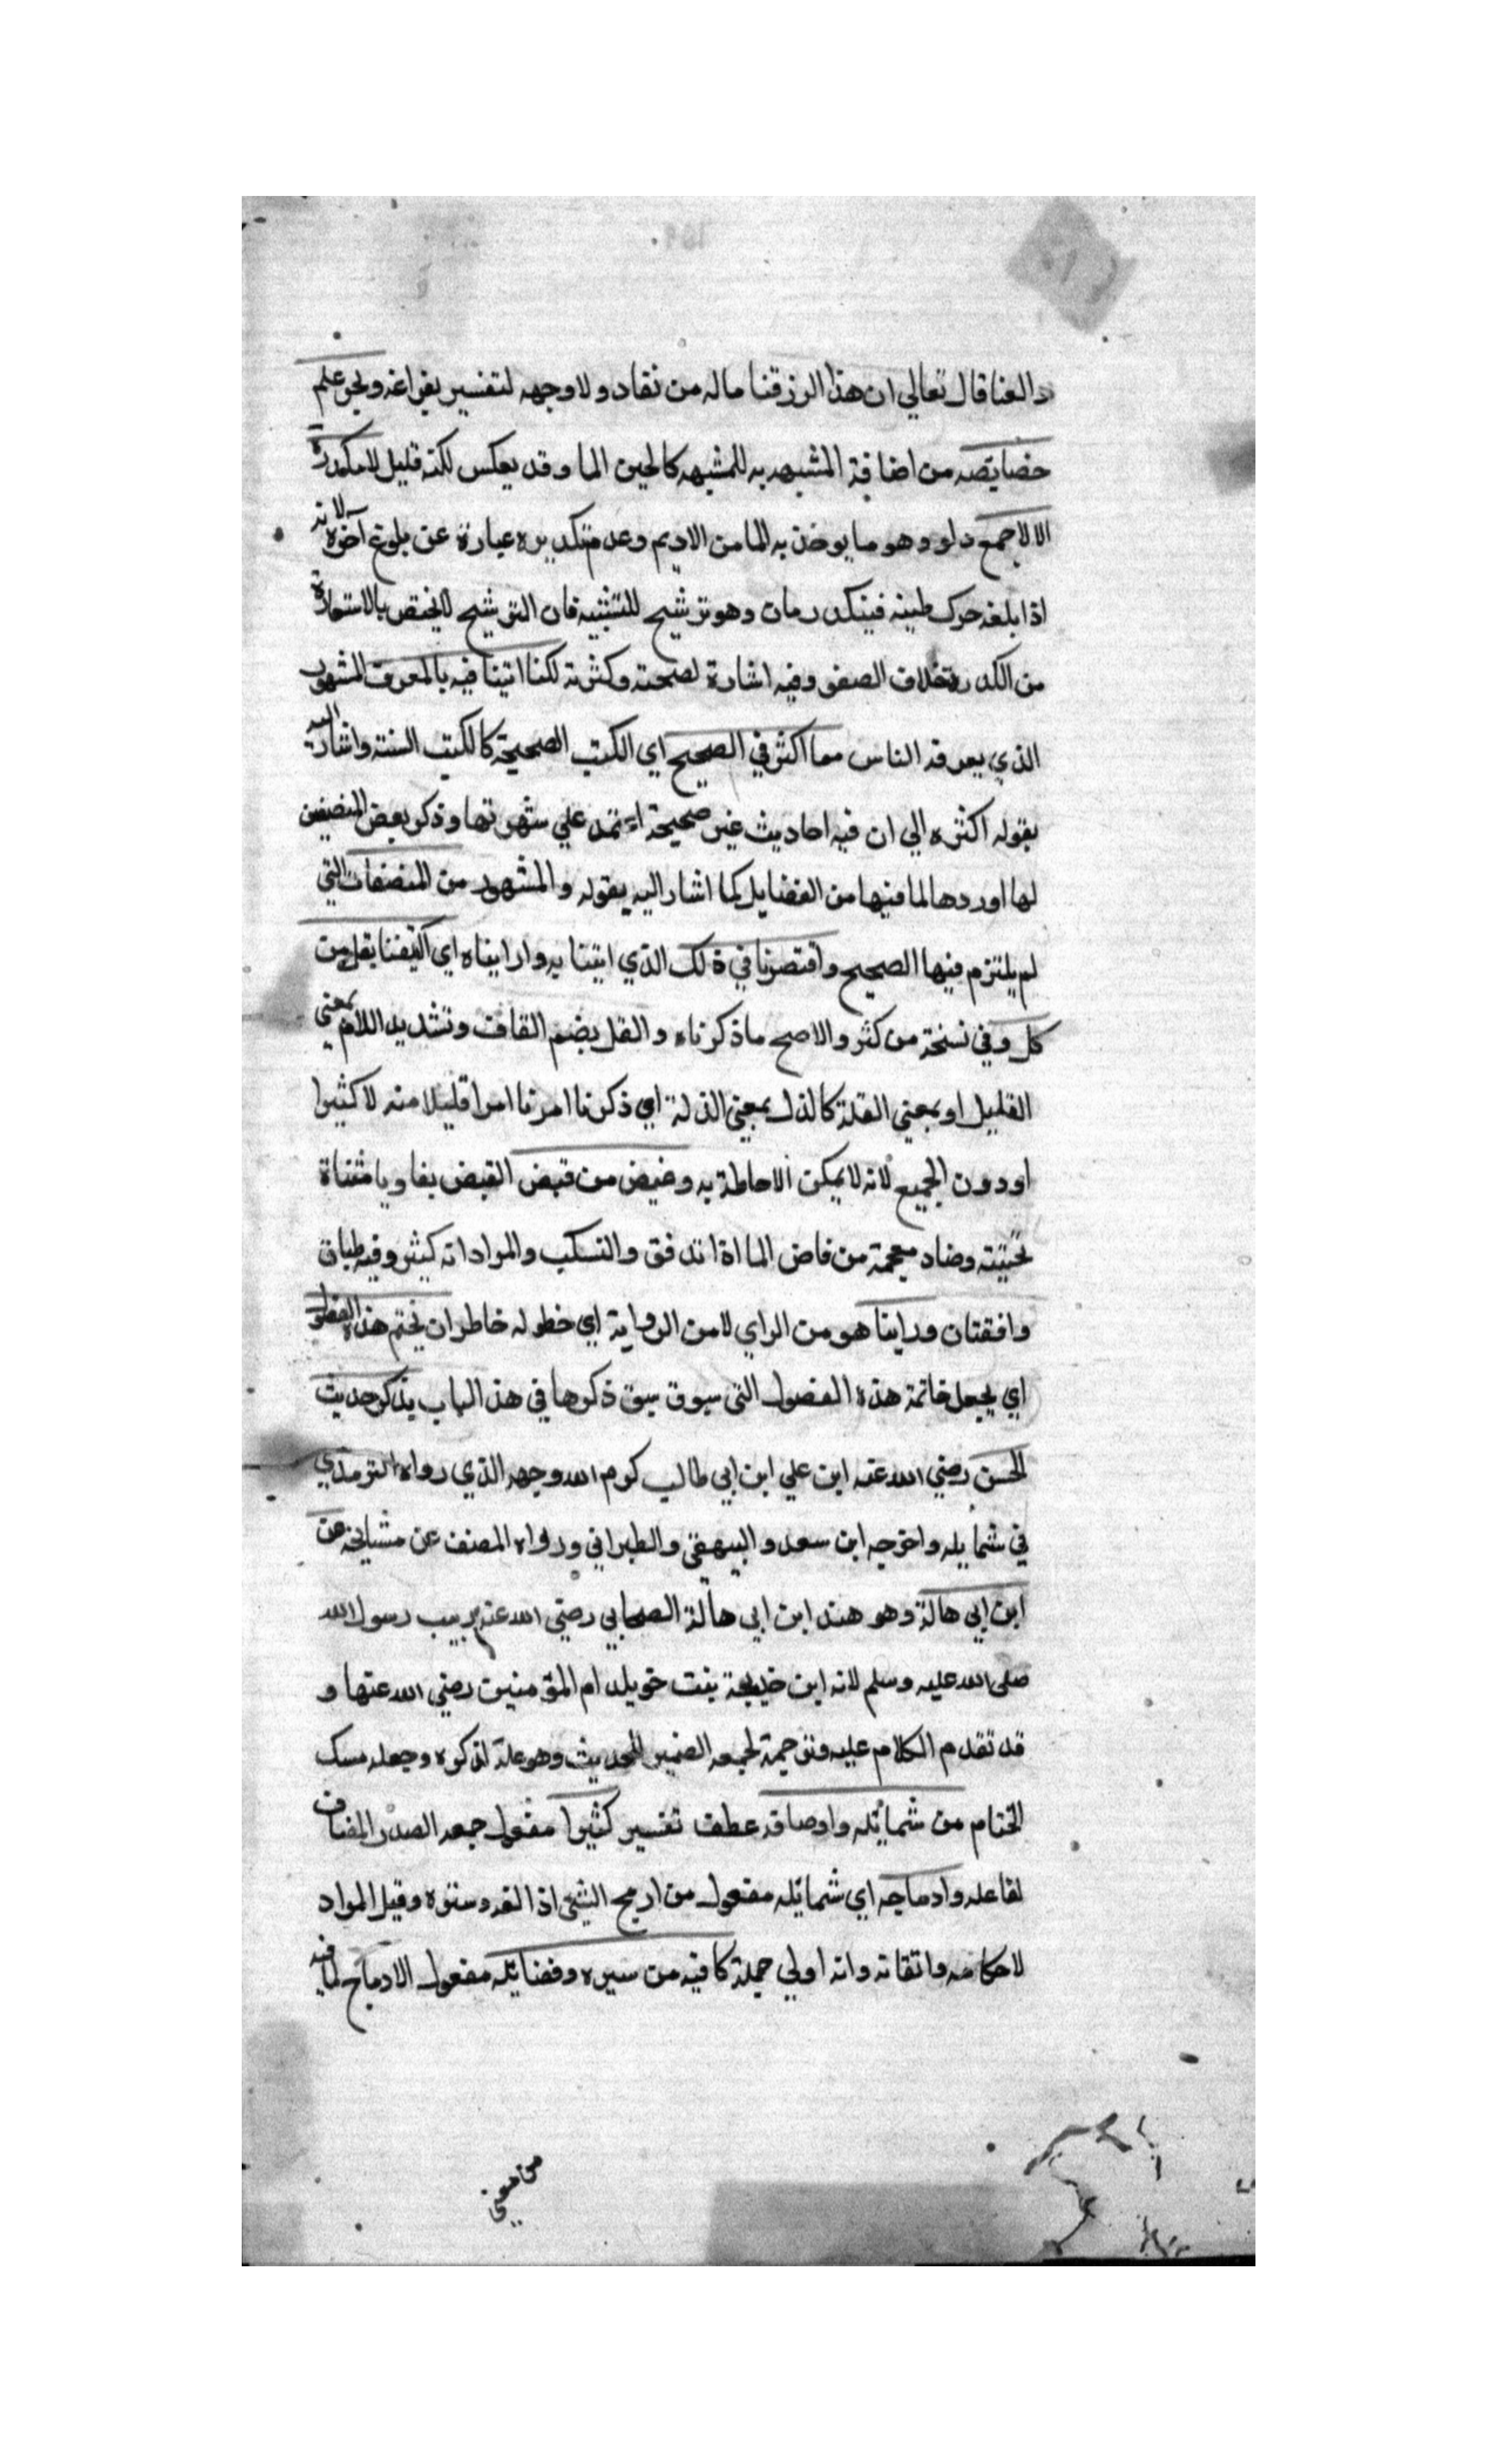 والعنا قال تعالي ان هذا الرزقنا ماله من نفاد ولا وجهه لتفسير بفراغه وبحر علم
خصايصه من اضافة المشبه به للمشبه كالجين الما وقد يعكس لكنه قليل لا تكدره
الا لا جمع دلو وهو ما يوخذ به الما من الاديم وعدم تكديره عبارة عن بلوغ اخره لانه
اذا بلغه حرك طينه فيتكدر مات وهو ترشيح للتشبيه فان الترشيح لا يختص بالاستعارة
من الكدر بخلاف الصفو وفيه اشارة لصحته وكثرته لكنا اتينا فيه بالمعروف المشهور
الذي يعرفه الناس مما اكثر في الصحيح اي الكتب الصحيحة كالكتب الستة واشار اليه
بقوله اكثره الي ان فيه احاديث غير صحيحة اعتمد علي شهرتها وذكر بعض المنصفين
لها اوردها لما فيها من الفضايل كما اشار اليه بقوله والمشهور من المصنفات التي
لم يلتزم فيها الصحيح واقتصرنا في ذلك الذي اتينا به وارايناه اي اكتفينا بقل من
كل وفي نسخة من كثر والاصح ما ذكرناه والقل بضم القاف وتشديد اللام بمعني
القليل او بمعني القلة كالذل بمعني الذلة اي ذكرنا امرنا امرا قليلا منه لا كثيرا
او دون الجميع لانه لا يمكن الاحاطة به وغيض من فيض الفيض بفا ويا مثناة
تحتيته وضاد معجمة من فاض الما اذا تدفق والتسكب والمراد انه كيثر وفيه طباق
وافقتان وراينا هو من الراي لا من الرواية اي خطر له خاطر ان نختم هذه الفصول
اي يجعل خاتمة هذه الفصول التي سوق سبق ذكرها في هذ الباب بذكر حديث
الحسن رضي الله عنه ابن علي ابن ابي طالب كرم الله وجهه الذي رواه الترمذي
في شمايله واخرجه ابن سعد والبيهقي والطبراني ورواه المصنف عن مشايخه عن
ابن ابي هالة وهو هند ابن ابي هالة الصحابي رضي الله عنه ربيب رسول الله
صلي الله عليه وسلم لانه ابن خديجة بنت خويلد ام المؤمنين رضي الله عنها و
قد تقدم الكلام عليه وترجمة لجمعه الضمير للحديث وهو علة لذكره وجعله مسك
الختام من شمائله واوصافه عطف تفسير كثيرا مفعول جمعه الصدر المضاف
لفاعله وادماجه اي شمائله مفعول من ادمج الشي اذا لفه وستره وقيل المراد
لاحكامه واتقانه وانه اولي جملة كافيه من سيره وفضائله مفعول الادماج لما فيه
من معني